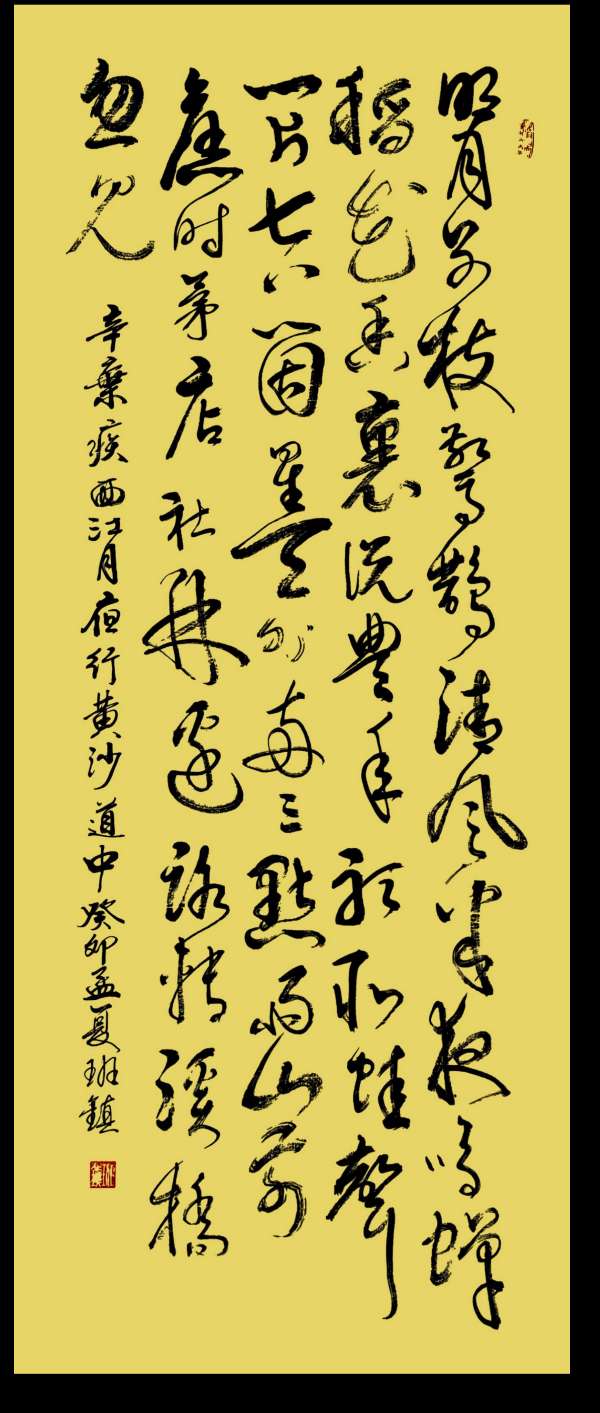 明月别枝驚鵲清风半夜鸣蝉
稻花香裏说豐年听取蛙聲
一片七八箇星天外两三點雨山前
舊时茅店社林邊路轉溪橋
忽见
辛棄疾西江月夜行黄沙道中癸卯孟夏班鎮